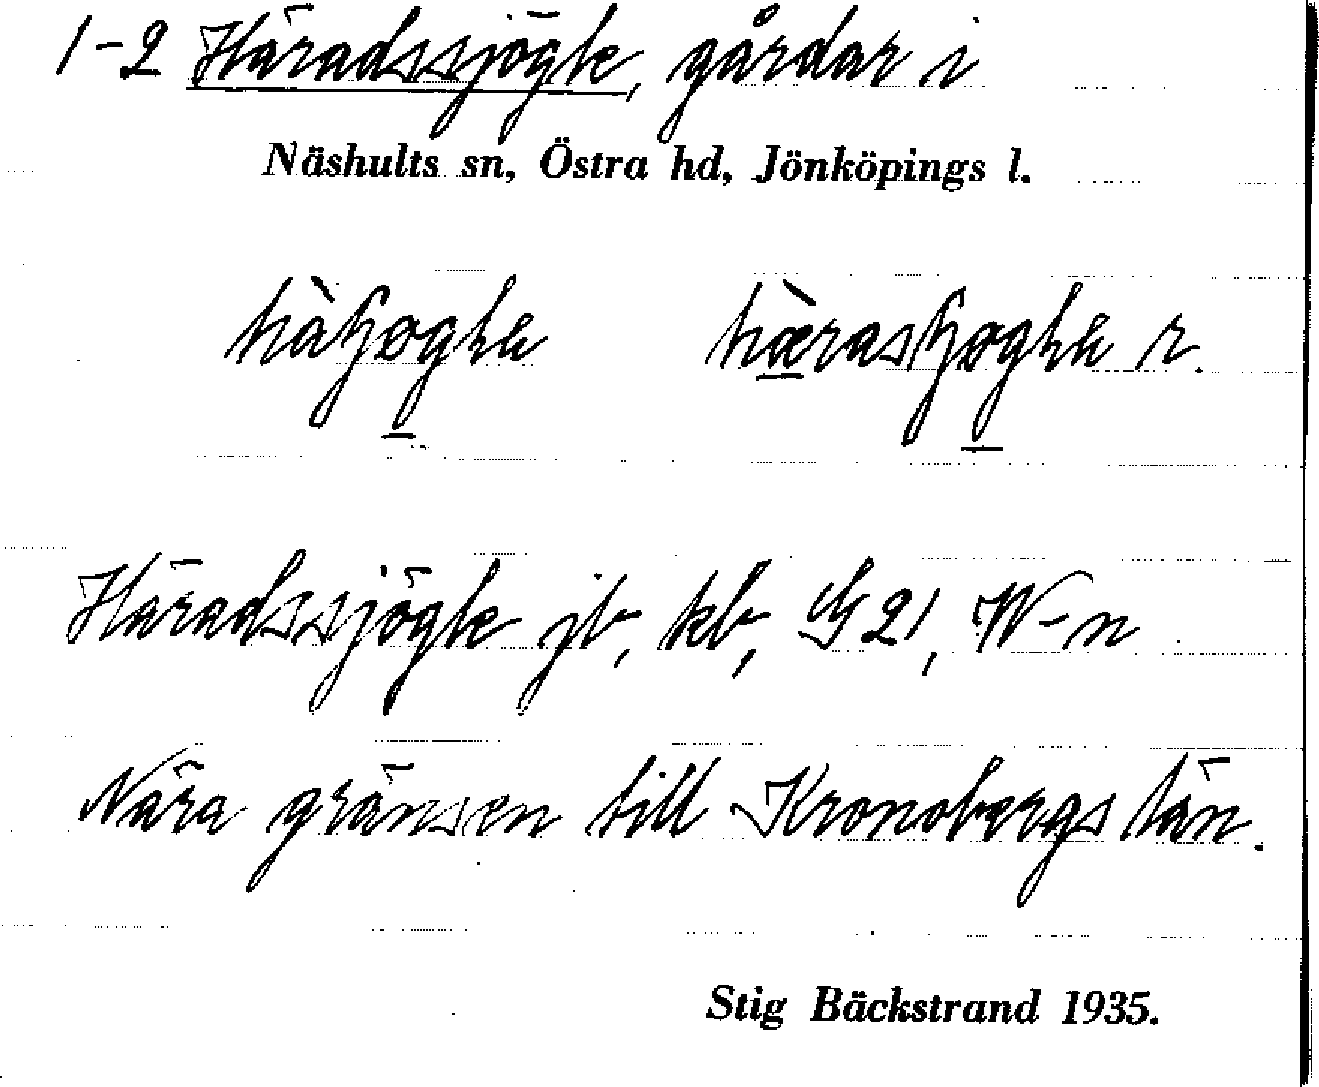 1-2 Häradssjögle, gårdar i
Näshults sn, Östra hd, Jönköpings l.
r.
Häradssjögle jb, kb, G 21, W-n
Nära gränsen till Kronobergs län.
Stig Bäckstrand 1935.